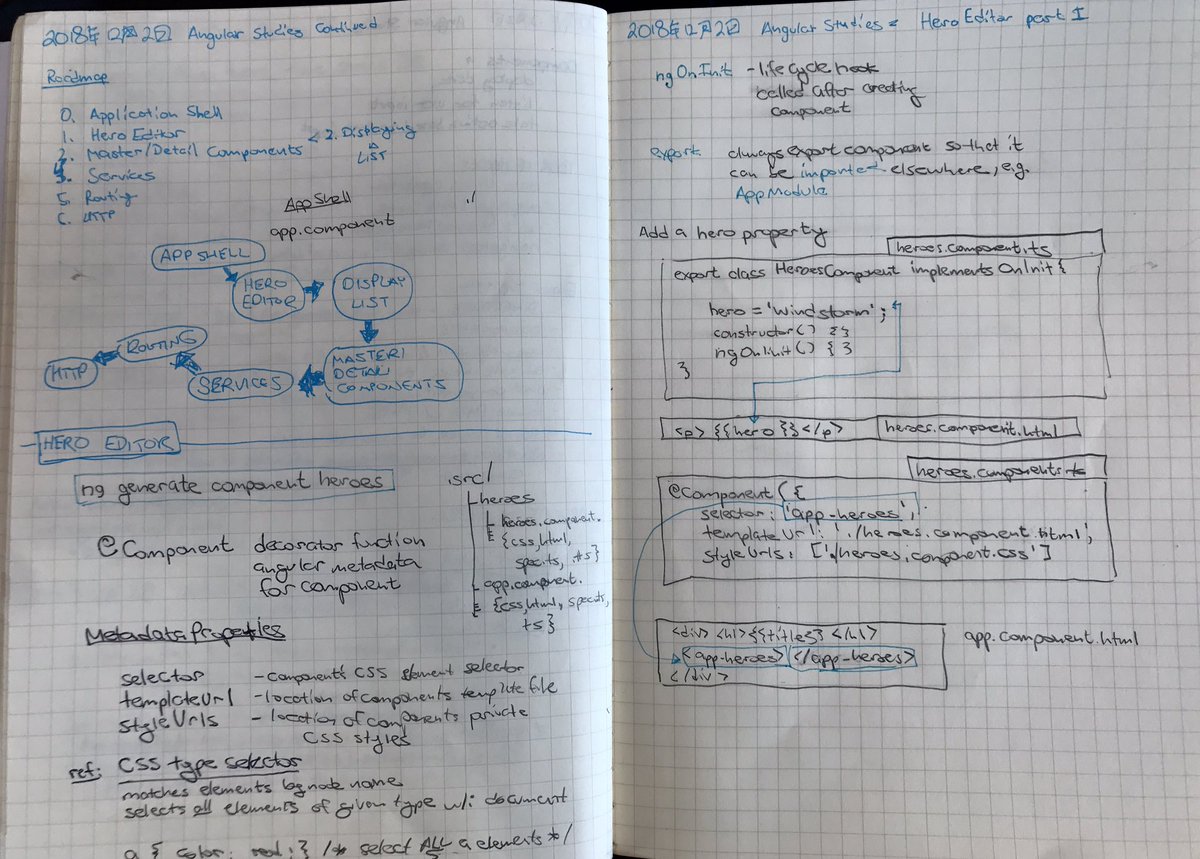 2018年12月2日 Angular Studies Continued
Roadmap
0. Application Shell
1. Hero Editor
2. Master/Detail Components < 2. Displaying
LIST
3. Services
5. Routing
6. HTTP
App Shell ./
app.component
APP SHELL
HERO EDITOR
DISPLAY LIST
MASTER/
DETAIL
COMPONENTS
SERVICES
ROUTING
HTTP
HERO EDITOR
ng generate component heroes
src/
heroes
heroes.component.
{css,html,
spec.ts, .ts}
app.component.
{css,html, spec.ts,
ts}
@Component decorator function
angular metadata
for component
Metadata Properties
selector - component's CSS element selector
templateUrl - location of components template file
styleUrls - location of components private
CSS styles
ref: CSS type selector
matches elements by node name
selects all elements of given type w/i document
a { color: red; } /* select ALL a elements */
2018年12月2日 Angular Studies = Hero Editor part I
ngOnInit - lifecycle hook
called after creating
component
export always export component so that it
can be imported elsewhere, e.g.
AppModule
Add a hero property
heroes.component.ts
export class HeroesComponent implements OnInit {
hero = 'Windstorm';
constructor() { }
ngOnInit() { }
}
<p> {{hero}} </p> heroes.component.html
heroes.components.ts
@Component({
selector: 'app-heroes',
templateUrl: './heroes.component.html',
styleUrls: ['./heroes.component.css']
<div> <h1>{{title}} </h1>
<app-heroes> </app-heroes>
</div>
app.component.html